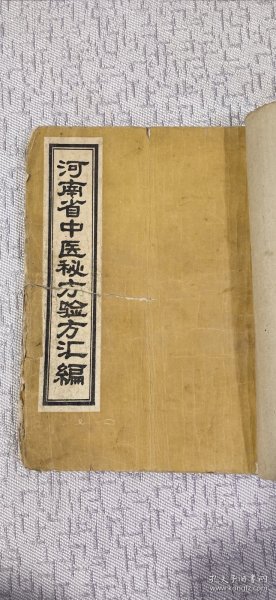 河南省中医秘方验方汇编
孔夫子旧书网